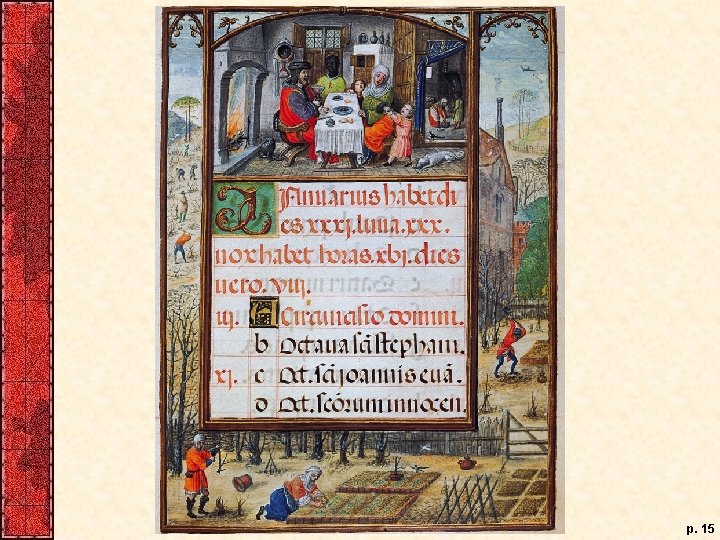 Januarius habet di
es xxxj. luna. xxx.
nox habet horas. xbj. dies
uero. viij.
iij. A Circuncisio domini.
b Octaua scī stephani.
xj. c Oct. scī joannis euā.
d Oct. scōrum innocen.
p. 15